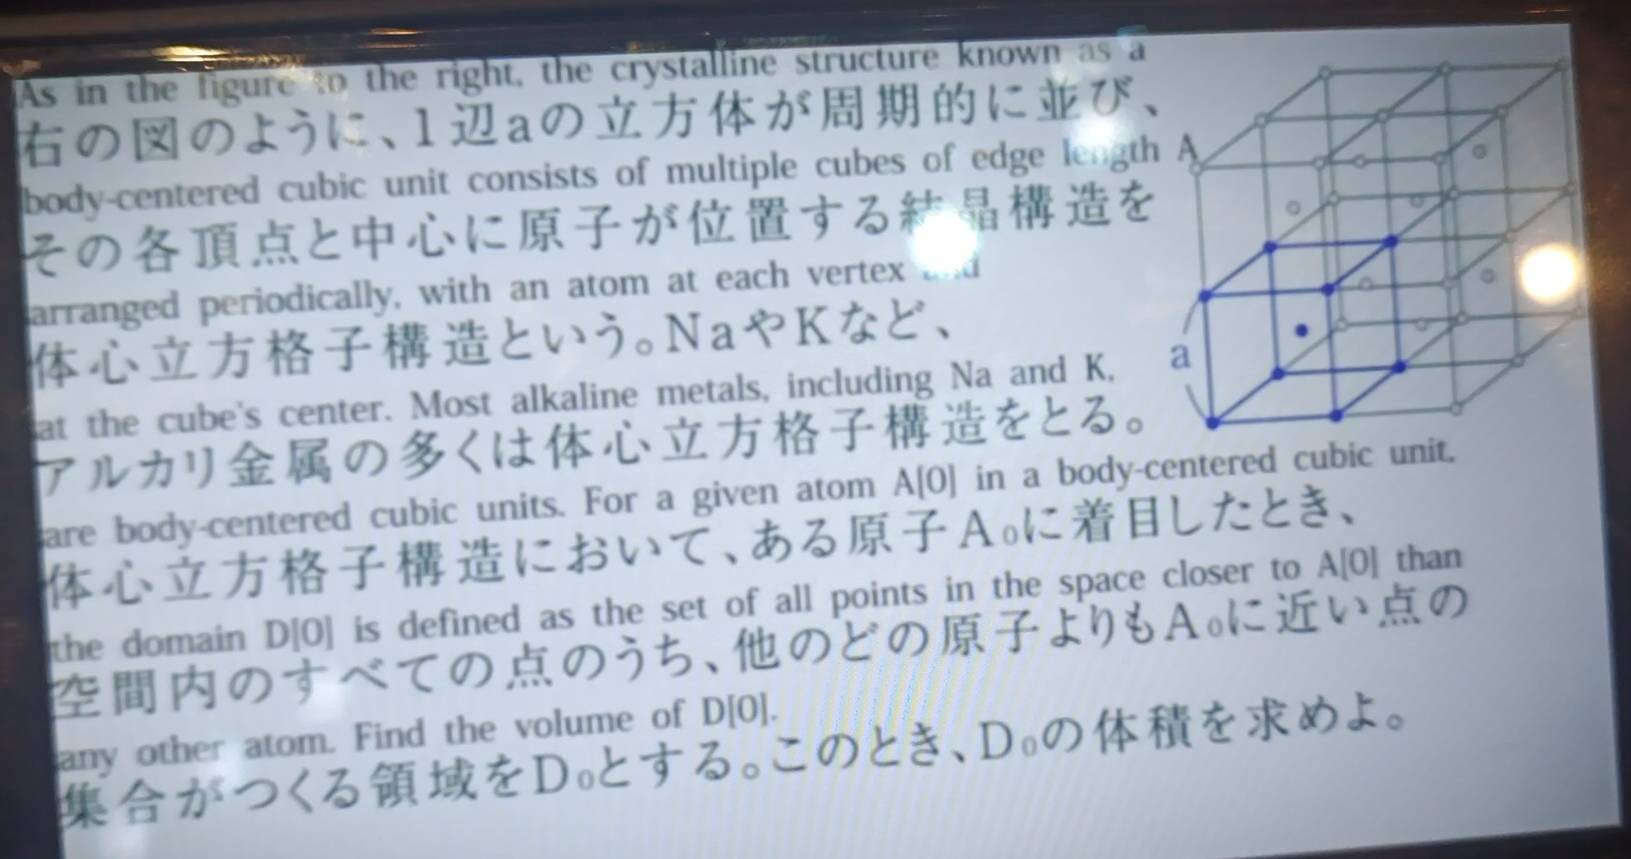 As in the figure to the right, the crystalline structure known as a
右の図のように、1辺aの立方体が周期的に並び、
body-centered cubic unit consists of multiple cubes of edge length A
その各頂点と中心に原子が位置する結晶構造を
arranged periodically, with an atom at each vertex and
体心立方格子構造という。NaやKなど、
at the cube's center. Most alkaline metals, including Na and K,
アルカリ金属の多くは体心立方格子構造をとる。
are body-centered cubic units. For a given atom A[0] in a body-centered cubic unit,
体心立方格子構造において、ある原子A₀に着目したとき、
the domain D[0] is defined as the set of all points in the space closer to A[0] than
空間内のすべての点のうち、他のどの原子よりもA₀に近い点の
any other atom. Find the volume of D[0].
集合がつくる領域をD₀とする。このとき、D₀の体積を求めよ。
a